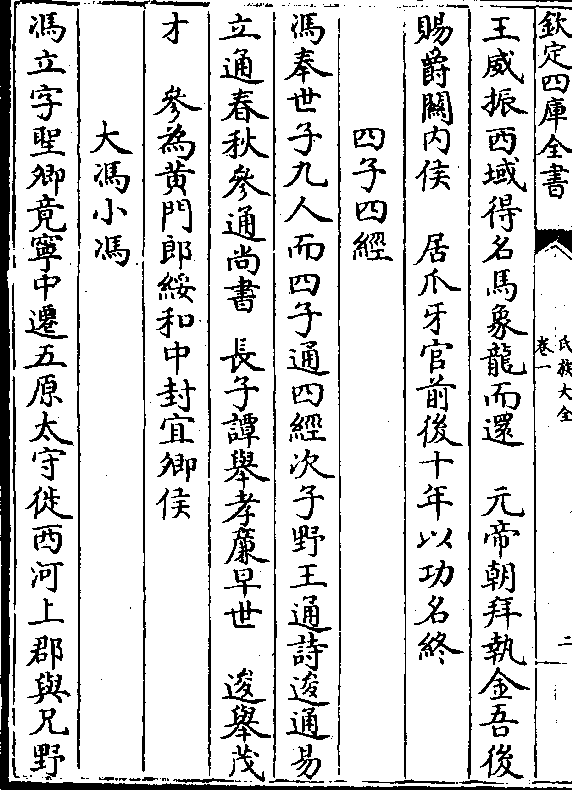 欽定四庫全書
氏族大全
卷一
二
王威振西域得名馬象龍而還　元帝朝拜執金吾後
賜爵關內侯　居爪牙官前後十年以功名終
四子四經
馮奉世子九人而四子通四經次子野王通詩逡通易
立通春秋參通尚書　長子譚舉孝廉早世　逡舉茂
才　參為黃門郎綏和中封宜卿侯
大馮小馮
馮立字聖卿竟寧中遷五原太守徙西河上郡與兄野